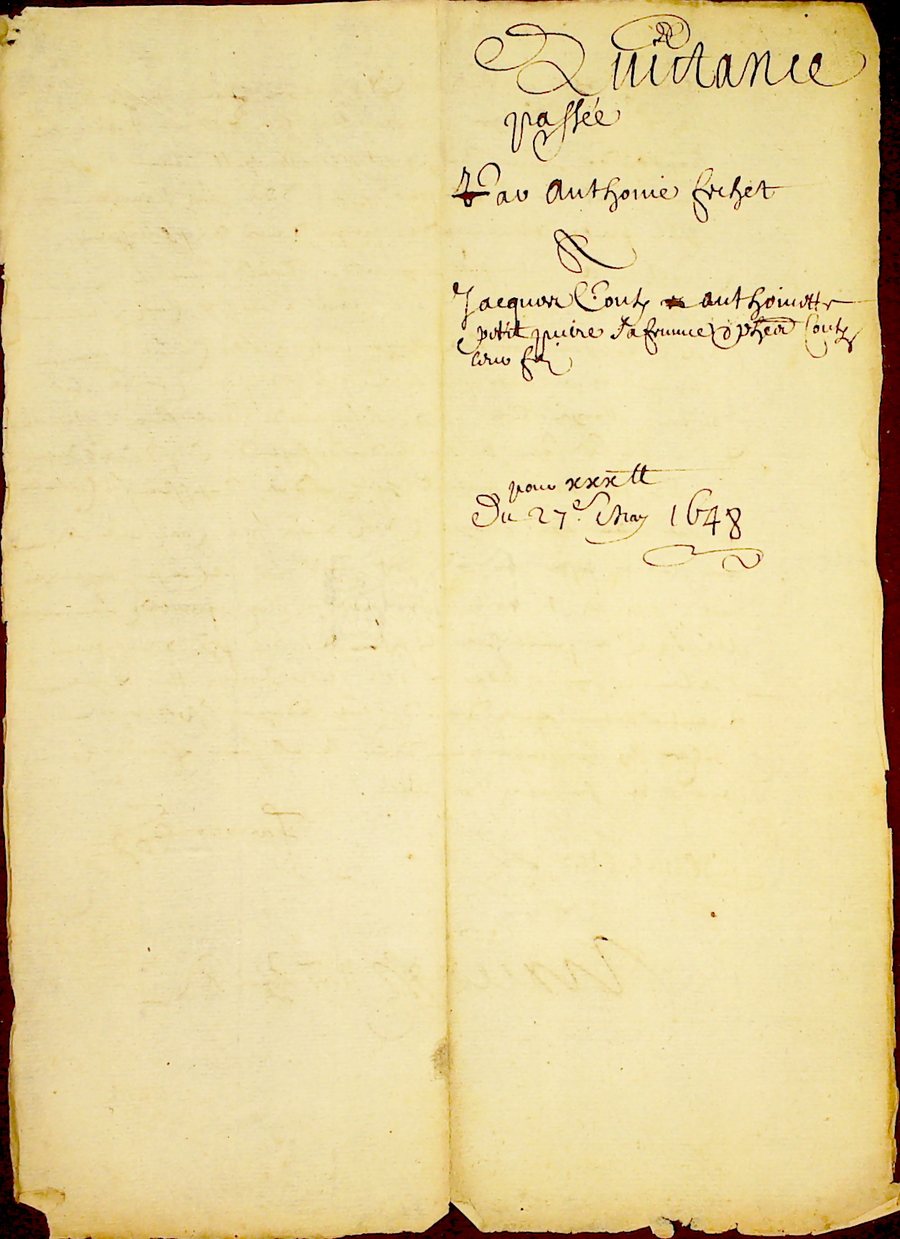 Quictance
passée
Par Anthonie frchet
A
Jacques Conte anthoinette
petit sa femme & Conte
leur fi
pour xxx tt
Du 27e May 1648